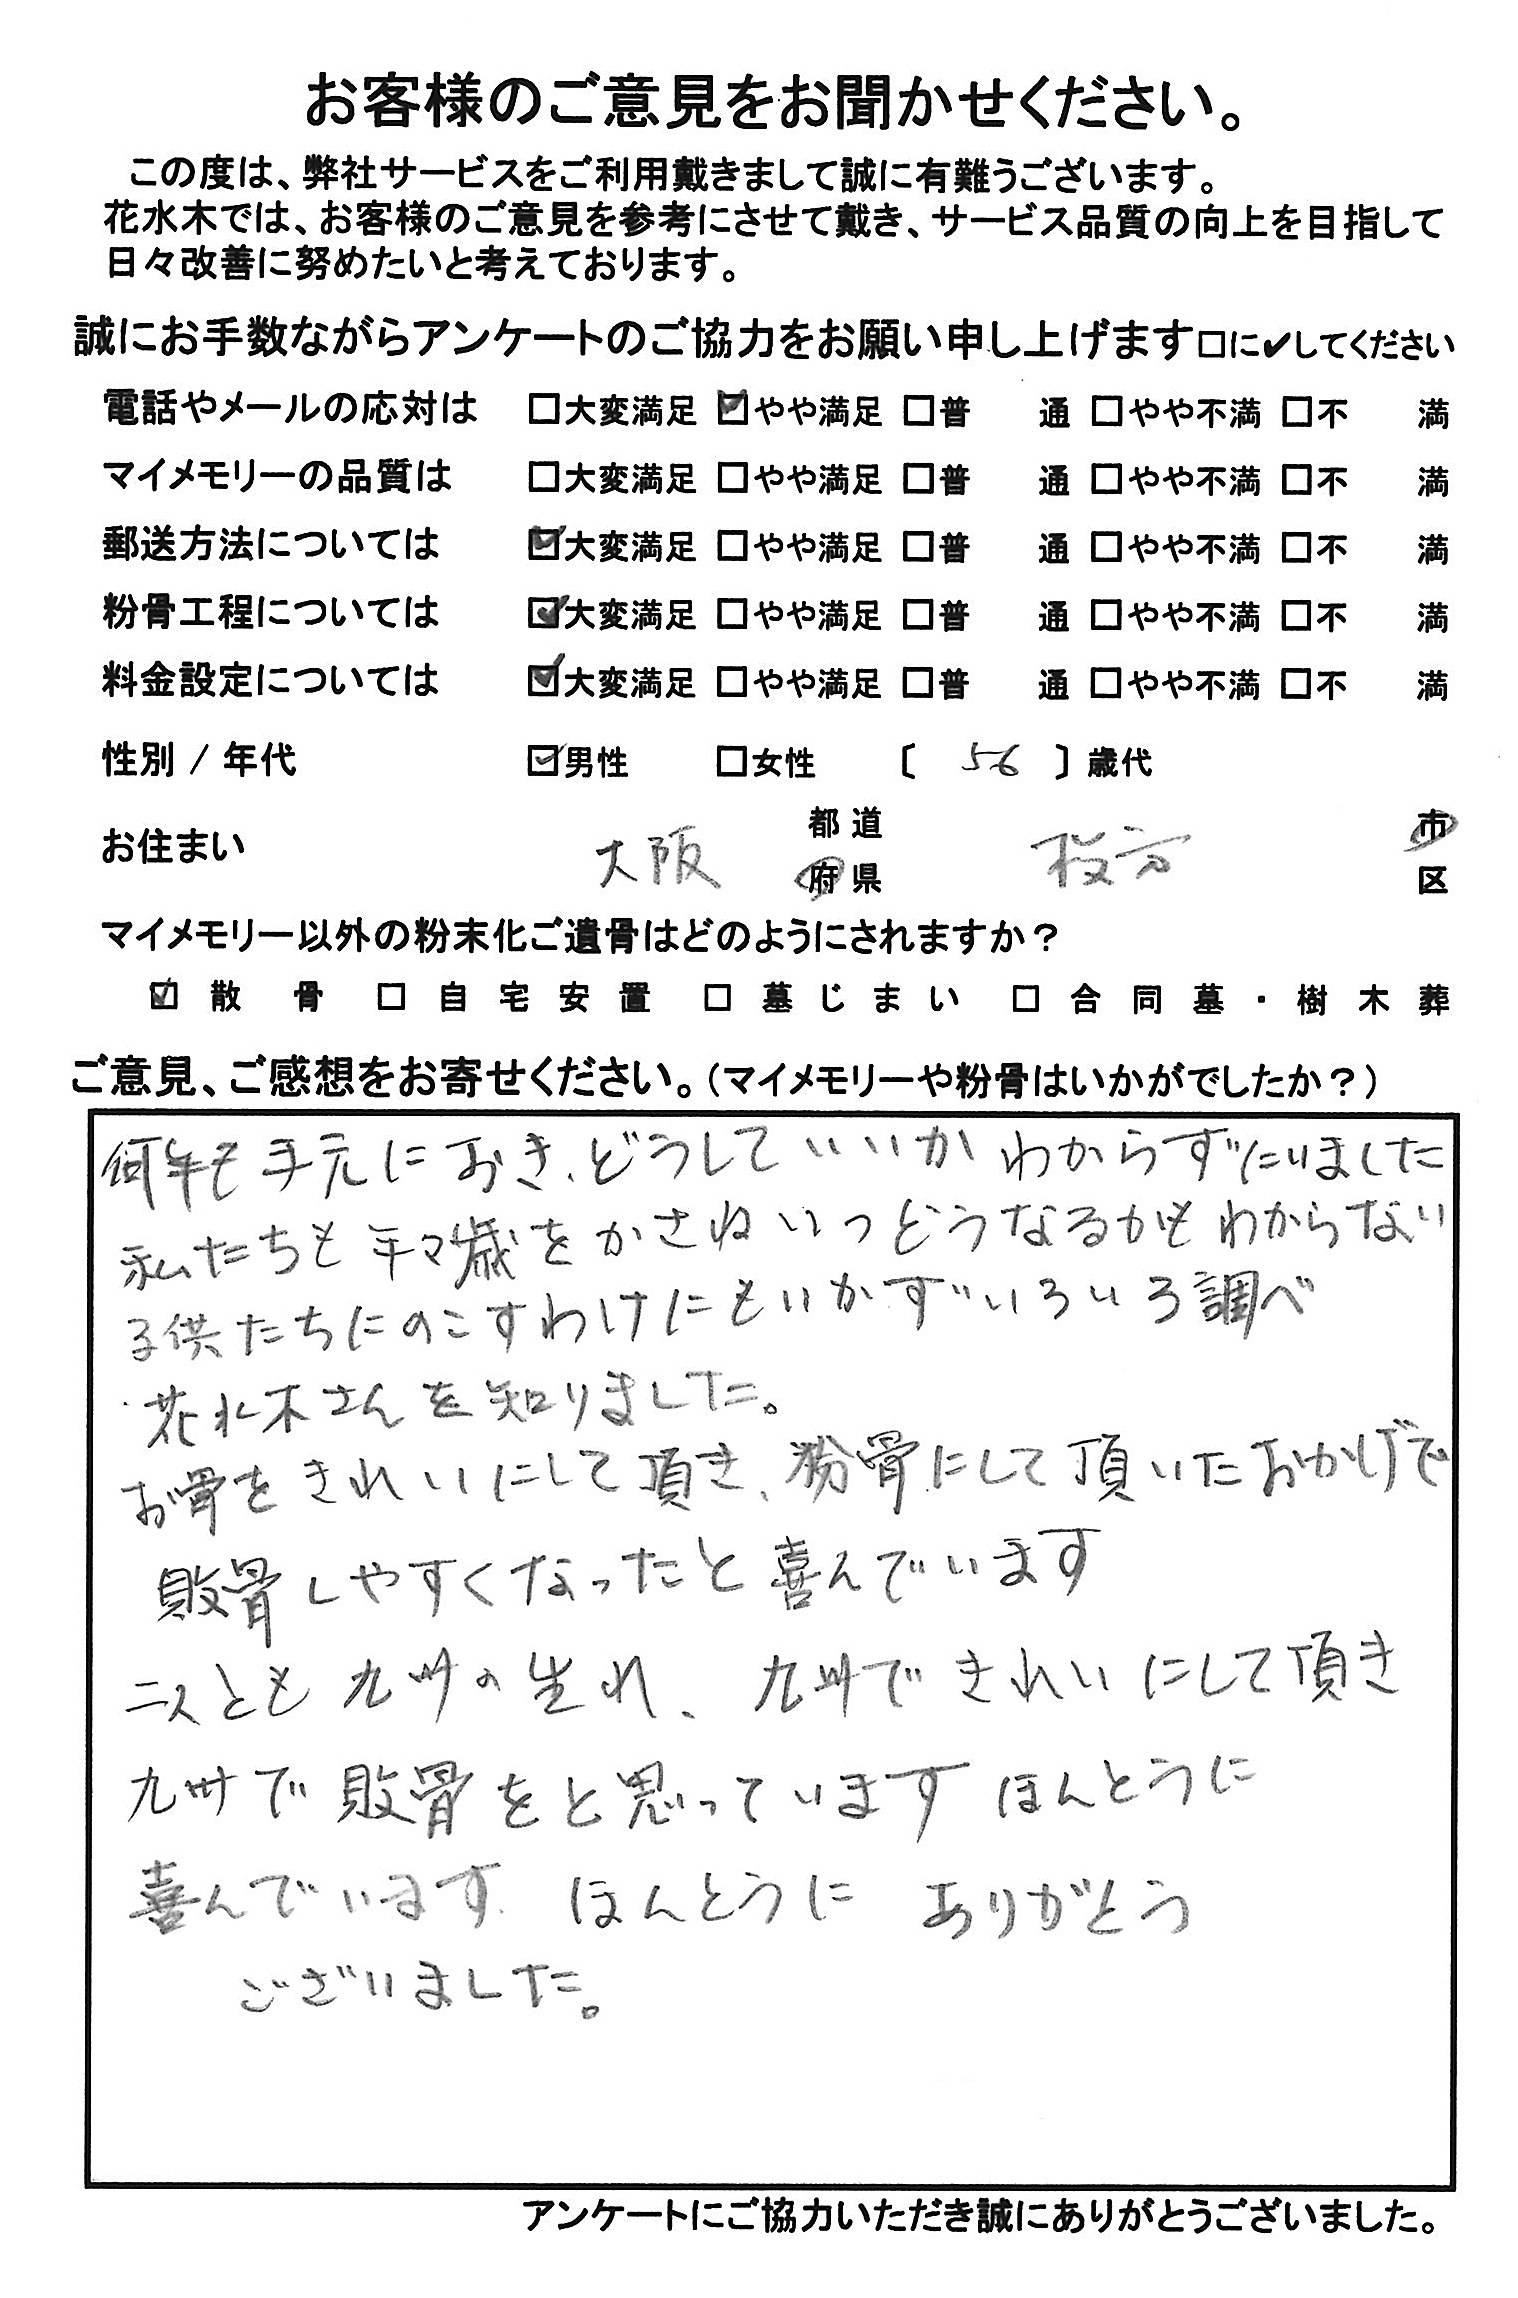 お客様のご意見をお聞かせください。
この度は、弊社サービスをご利用戴きまして誠に有難うございます。
花水木では、お客様のご意見を参考にさせて戴き、サービス品質の向上を目指して
日々改善に努めたいと考えております。
誠にお手数ながらアンケートのご協力をお願い申し上げます□に✔してください
電話やメールの応対は □大変満足 ☑やや満足 □普 通 □やや不満 □不 満
マイメモリーの品質は □大変満足 □やや満足 □普 通 □やや不満 □不 満
郵送方法については ☑大変満足 □やや満足 □普 通 □やや不満 □不 満
粉骨工程については ☑大変満足 □やや満足 □普 通 □やや不満 □不 満
料金設定については ☑大変満足 □やや満足 □普 通 □やや不満 □不 満
性別 / 年代 ☑男性 □女性 〔 56 〕歳代
お住まい 大阪 都道府県 枚方 市区
マイメモリー以外の粉末化ご遺骨はどのようにされますか？
☑ 散骨 □ 自宅安置 □ 墓じまい □ 合同墓・樹木葬
ご意見、ご感想をお寄せください。（マイメモリーや粉骨はいかがでしたか？）
何年も手元におき、どうしていいかわからずにいました
私たちも年々歳をかさねいつどうなるかもわからない
子供たちにのこすわけにもいかずいろいろ調べ
花水木さんを知りました。
お骨をきれいにして頂き、粉骨にして頂いたおかげで
散骨しやすくなったと喜んでいます
二人とも九州の生れ、九州できれいにして頂き
九州で散骨をと思っています ほんとうに
喜んでいます. ほんとうに ありがとう
ございました。
アンケートにご協力いただき誠にありがとうございました。